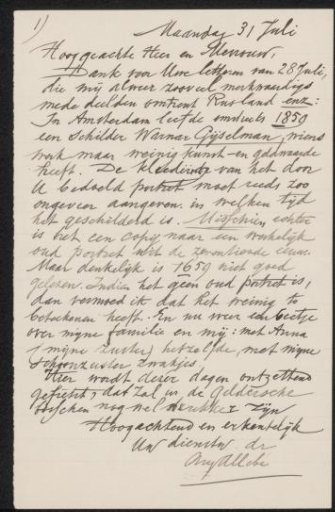 1)
Maandag 31 Juli
Hooggeachte Heer en Mevrouw,
Dank voor Uwe letteren van 28 Juli,
die mij alweer zooveel merkwaardigs
mede deelden omtrent Rusland enz:
In Amsterdam leefde omstreeks 1850
een schilder Warnar Gijselman, wiens
werk maar weinig kunst- en geldwaarde
heeft. De kleeding van het door
U bedoeld portret moet reeds zoo
ongeveer aangeven in welken tijd
het geschilderd is. Misschien echter
is het een copij naar een werkelijk
oud portret uit de zeventiende eeuw.
Maar denkelijk is 1659 niet goed
gelezen. Indien het geen oud portret is,
dan vermoed ik dat het weinig te
beteekenen heeft. En nu weer een beetje
over mijne familie en mij: met Anna
(mijne zuster) hetzelfde, met mijne
Schoonzuster zwakjes.
Hier wordt dezer dagen ontzettend
gefietst, dat zal in de Geldersche
bosschen nog wel sterker zijn
Hoogachtend en erkentelijk
Uw dienstw dr
Aug Allebé